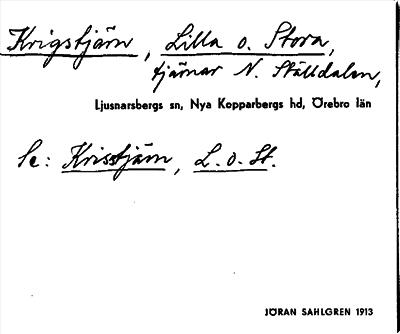 Krigstjärn, Lilla o. Stora,
tjärnar N. Ställdalen,
Ljusnarsbergs sn, Nya Kopparbergs hd, Örebro län
Se: Kristjärn, L. o. St.
JÖRAN SAHLGREN 1913